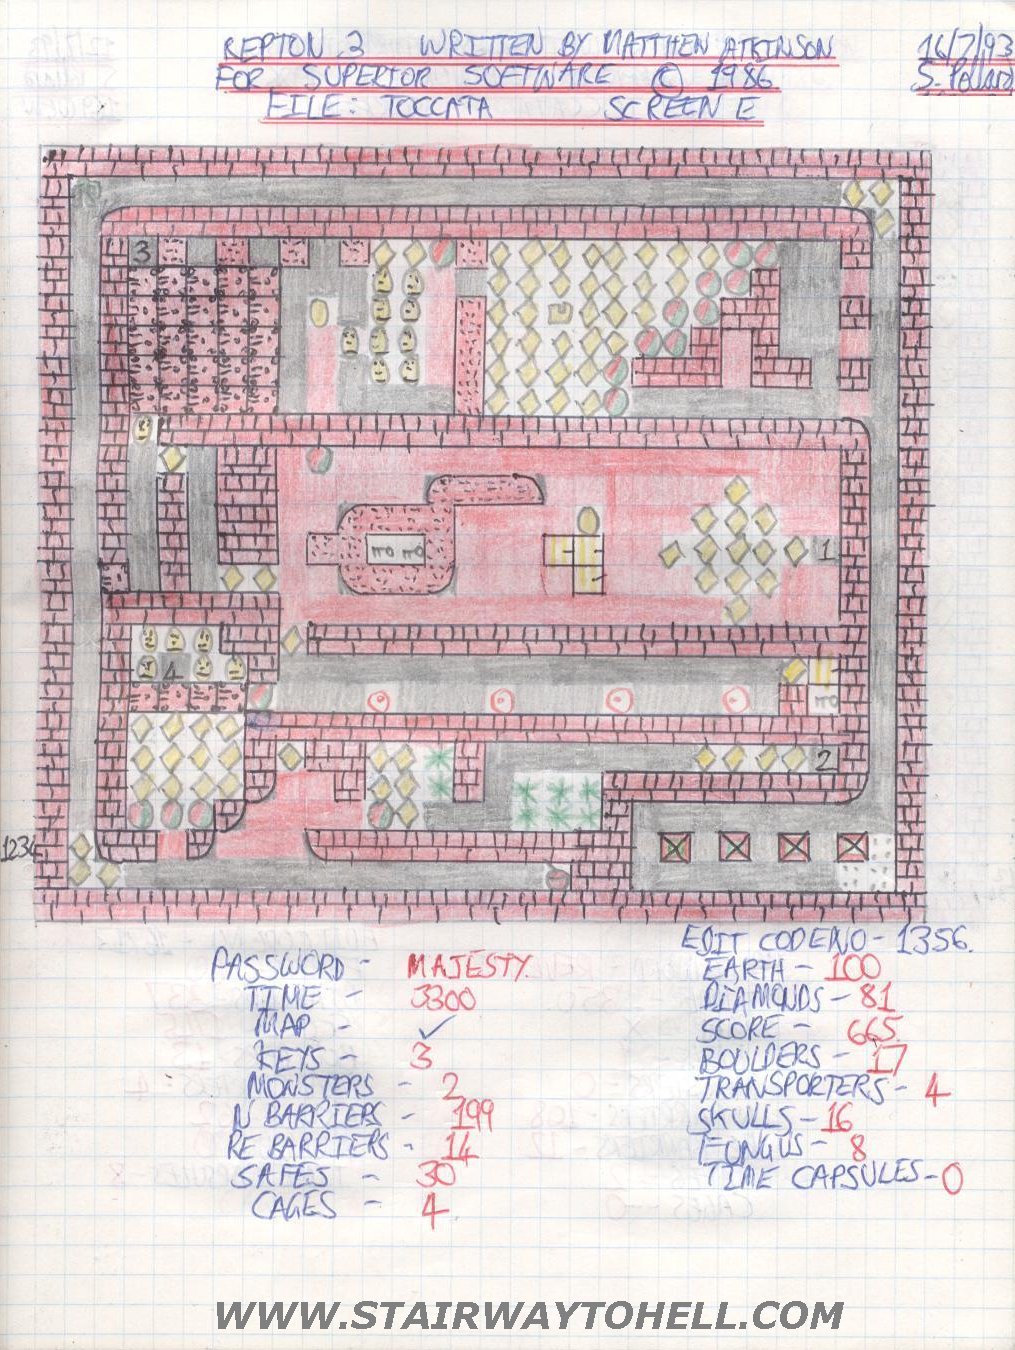 REPTON 3 WRITTEN BY MATTHEW ATKINSON 16/7/93
FOR SUPERIOR SOFTWARE © 1986 S. Pollard
FILE: TOCCATA SCREEN E
3
1
4
2
1234
EDIT CODE NO - 1356.
PASSWORD - MAJESTY. EARTH - 100
TIME - 3300 DIAMONDS - 81
MAP - ✓ SCORE - 665.
KEYS - 3 BOULDERS - 17
MONSTERS - 2 TRANSPORTERS - 4
N BARRIERS - 199 SKULLS - 16
RE BARRIERS - 14 FUNGUS - 8
SAFES - 30 TIME CAPSULES - 0
CAGES - 4.
WWW.STAIRWAYTOHELL.COM